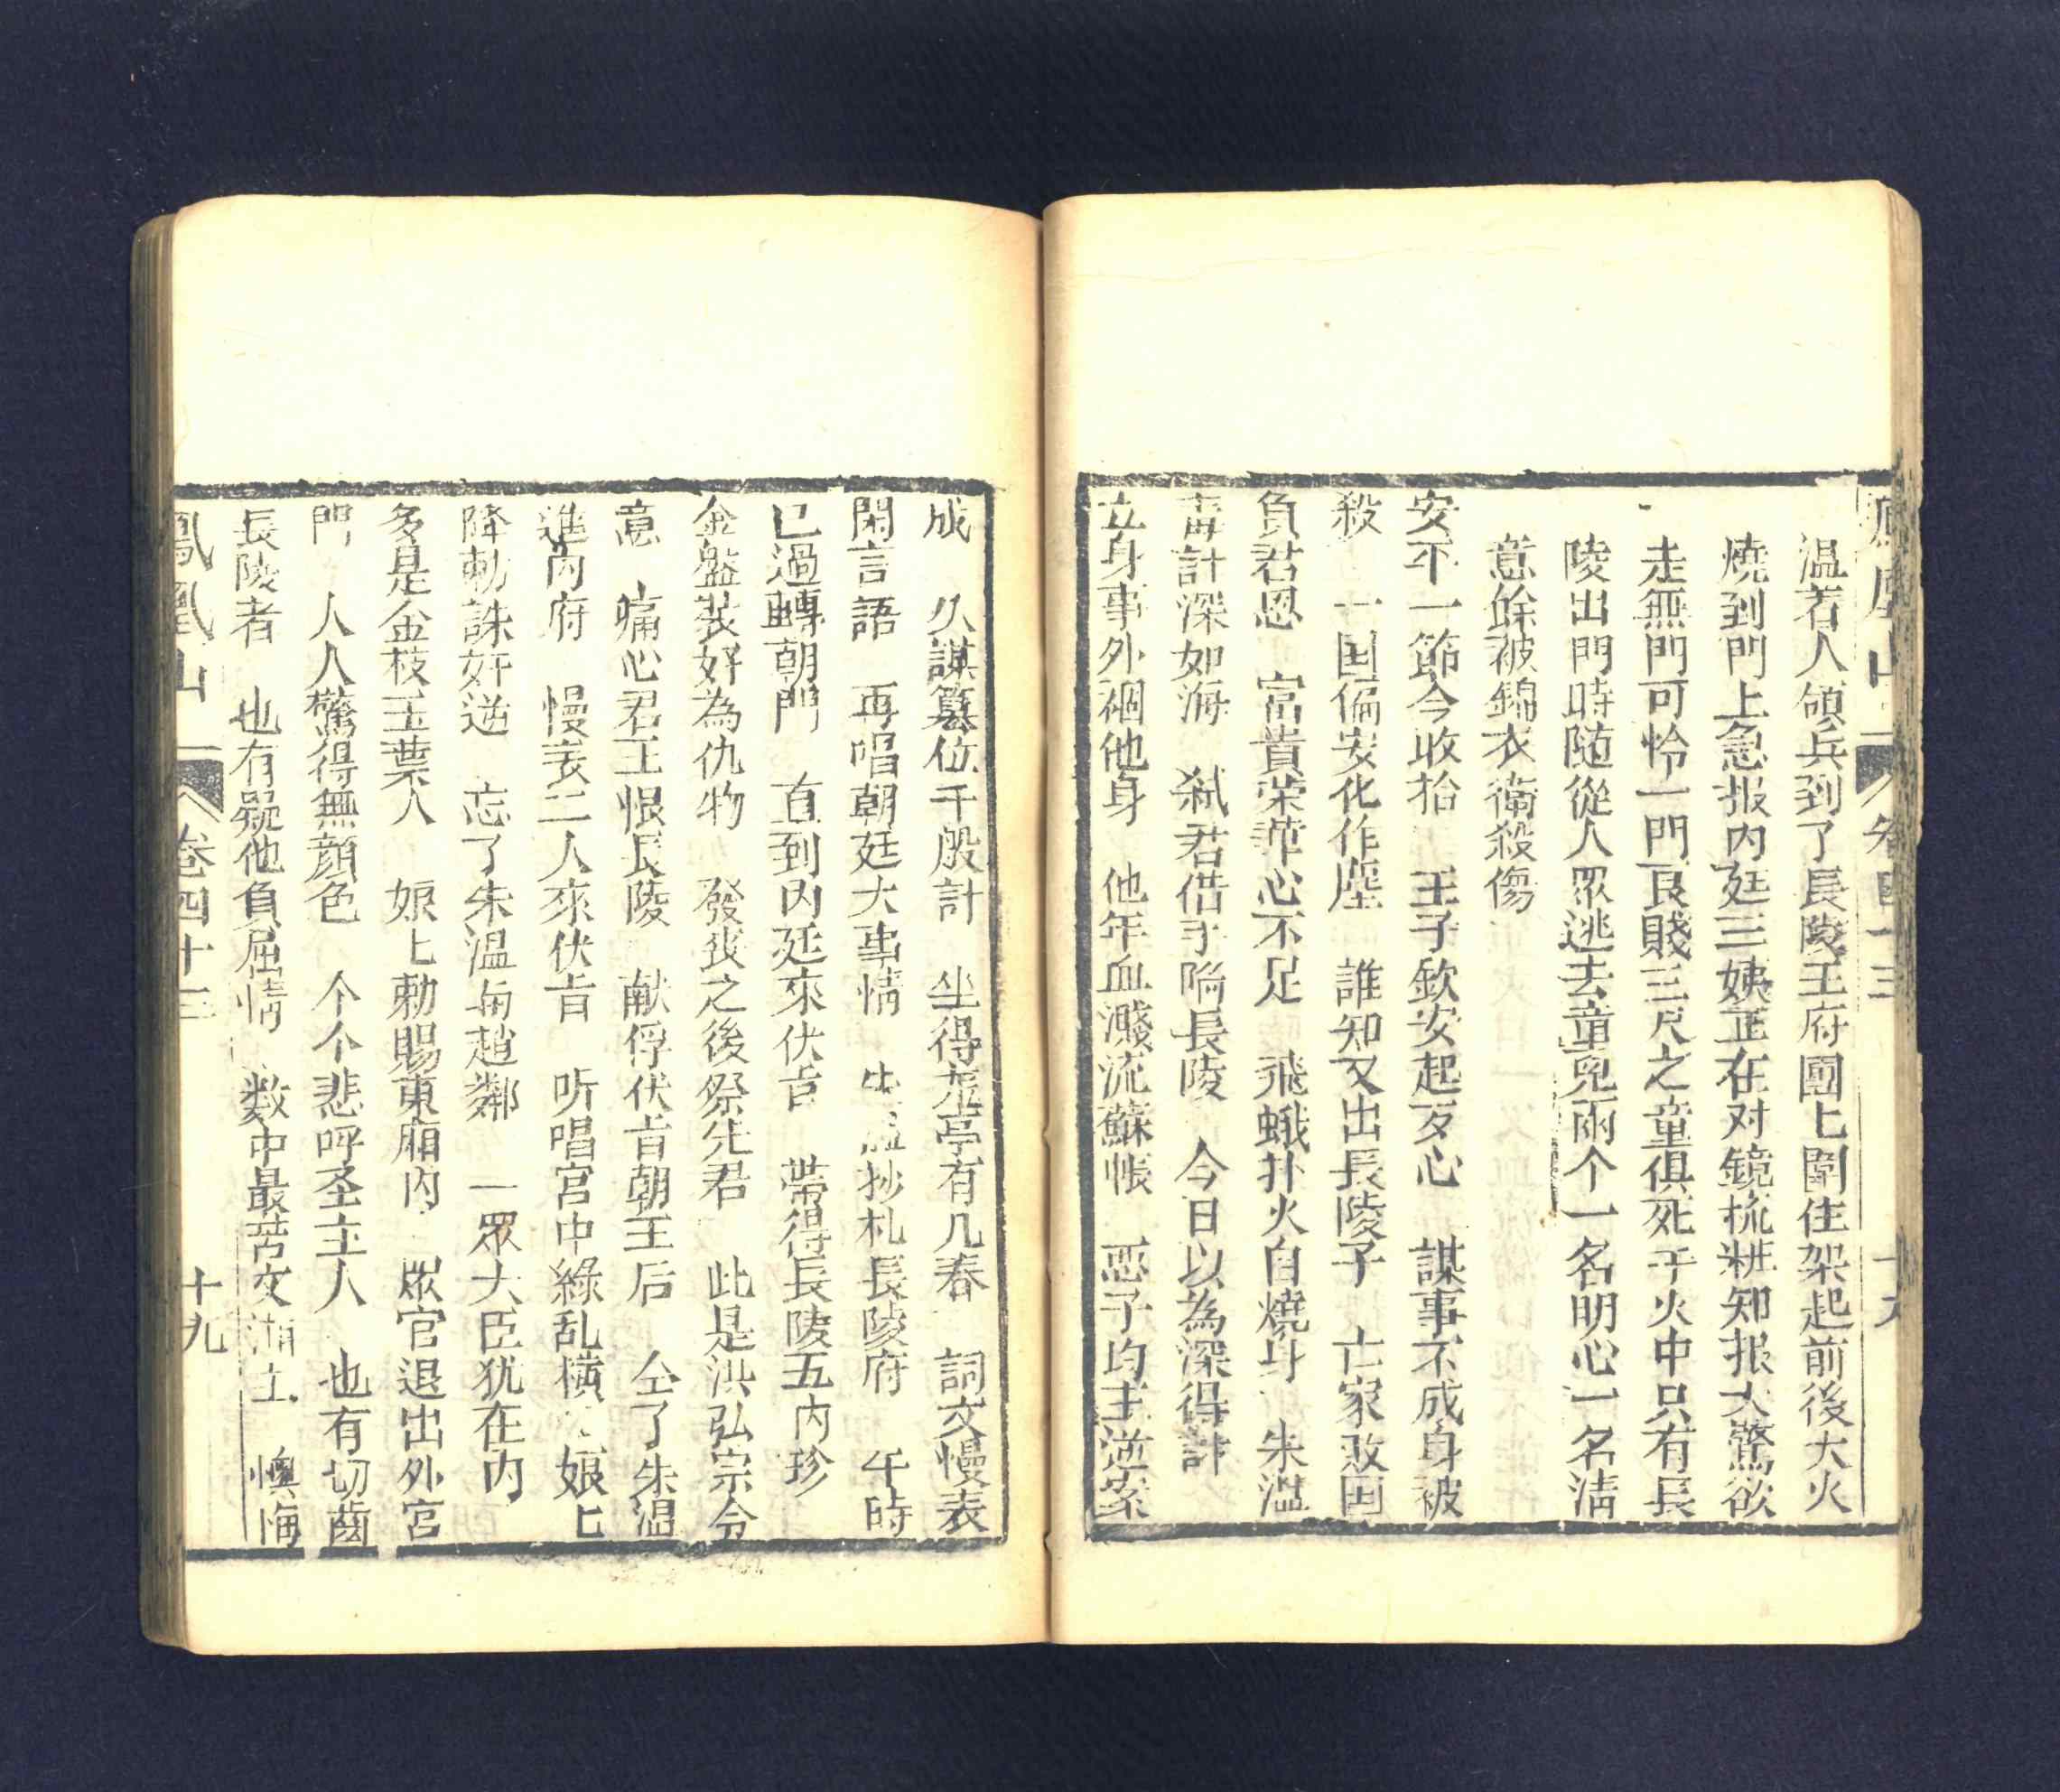 鳳凰山 卷四十三 十九
温着人領兵到了長陵王府團上圍住架起前後大火
燒到門上急报內廷三姨正在对鏡梳粧知报大驚欲
走無門可怜一門良賤三尺之童俱死于火中只有長
陵出門時随從人眾逃去童兒兩个一名明心一名清
意餘被錦衣衛殺傷
安不一節今收拾 王子欽安起歹心 謀事不成身被
殺 一国偏安化作塵 誰知又出長陵子 亡家敗国
負君恩 富貴荣華心不足 飛蛾扑火自燒身 朱温
毒計深如海 弑君借手陷長陵 今日以為深得計
立身事外禍他身 他年血濺流蘇帳 惡子均王逆案
成 久謀篡位千般計 坐得龙亭有几春 詞文慢表
閑言語 再唱朝廷大事情 朱温抄札長陵府 午時
已過轉朝門 直到内廷來伏旨 帶得長陵五内珍
金盤裝好為仇物 發丧之後祭先君 此是洪弘宗令
意 痛心君王恨長陵 献俘伏旨朝王后 仝了朱温
進内府 慢表二人來伏旨 听唱宫中繚乱横 娘匕
降勅誅奸逆 忘了朱温与趙鄰 一眾大臣犹在内
多是金枝玉葉人 娘匕勅賜東廂内 眾官退出外宫
門 人人驚得無顔色 个个悲呼圣主人 也有切齒
長陵者 也有疑他負屈情 数中最苦文湘士 懊悔
鳳凰山 卷四十三 十九